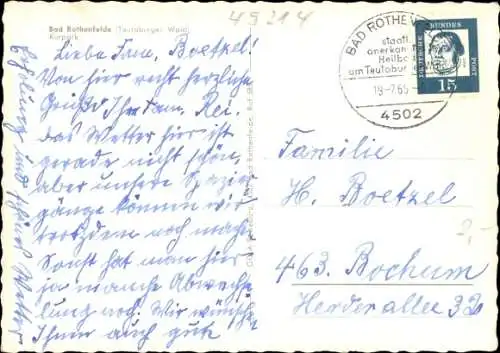 49214
Bad Rothenfelde (Teutoburger Wald)
Kurpark
Liebe Fam. Boetzel!
Von hier recht herzliche
Grüße Ihre Fam. Rei.
Das Wetter hier ist
gerade nicht schön,
aber unsere Spazier
gänge können wir
trotzdem noch mach.
Sonst hat man hier
ja manche Abwechs
lung noch. Wir wünsch
Ihnen auch gute
Erholung und schönes Wetter
BAD ROTHE
staatl.
anerkan
Heilb
am Teutobur
19.-7.65
4502
DEUTSCHE
BUNDES
POST
15
Familie
H. Boetzel
2,-
463. Bochum
Herderallee 32